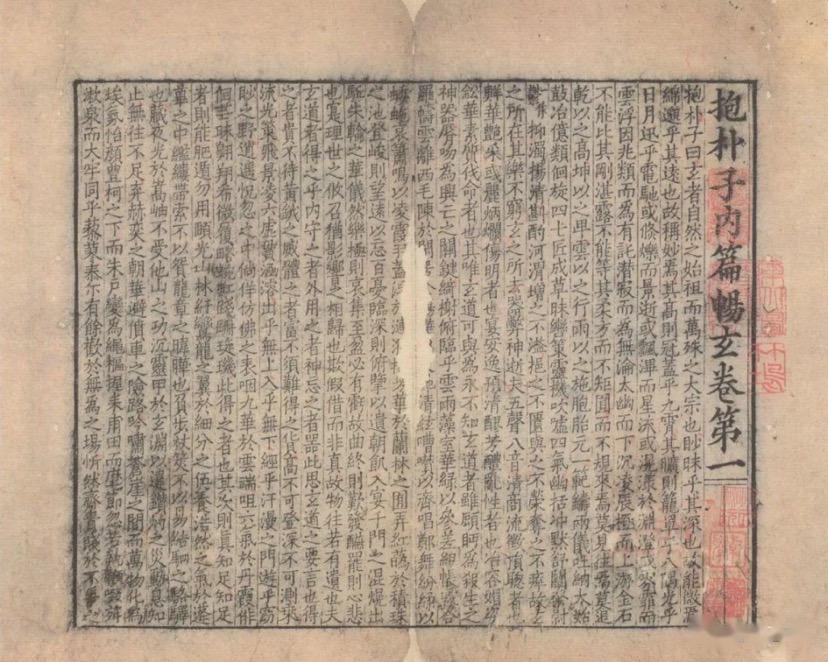 抱朴子内篇暢玄卷第一
抱朴子曰玄者自然之始祖而萬殊之大宗也眇昧乎其深也故稱微焉
綿邈乎其遠也故稱妙焉其高則冠蓋乎九霄其曠則籠罩乎八隅光乎
日月迅乎電馳或倏爍而景逝或飄滭而星流或滉漾於淵澄或雰霏而
雲浮因兆類而為有託潛寂而為無淪太幽而下沉凌辰極而上游金石
不能比其剛湛露不能等其柔方而不矩圓而不規來焉莫見往焉莫追
乾以之高坤以之卑雲以之行雨以之施胞胎元一範鑄兩儀吐納太始
鼓冶億類佪旋四七匠成草昧轡策靈機吹噓四氣幽括冲默舒闡粲尉
抑濁揚清斟酌河渭增之不溢挹之不匱與之不榮奪之不瘁故玄
之所在其樂不窮玄之所去器弊神逝夫五聲八音清商流徵損聰者也
鮮華艷采或麗炳爛傷明者也宴安逸豫清醪芳醴亂性者也冶容媚姿
鉛華素質伐命者也其唯玄道可與為永不知玄道者雖顧眄為殺生之
神器脣吻為興亡之關鍵綺榭俯臨乎雲雨藻室華綠以參差組帳霧合
羅幬雲離西毛陳於閒 清絃嘈囋以齊唱鄭舞紛綵以
蜲蛇哀簫鳴以凌霞羽蓋 華於蘭林之囿弄紅葩於積珠
之池登峻則望遠以忘百憂臨深則俯擥以遺朝飢入宴千門之混焜出
駈朱輪之華儀然樂極則哀集至盈必有虧故曲終則歎發醼罷則心悲
也寔理世之攸召猶影響之相歸也彼假借而非真故物往若有遺也夫
玄道者得之乎内守之者外用之者神忘之者器此思玄道之要言也得
之者貴不待黃鉞之威體之者富不須難得之貨高不可登深不可測乘
流光策飛景凌六虛貫涵溶出乎無上入乎無下經乎汗漫之門遊乎窈
眇之野逍遥恍惚之中倘佯彷彿之表咽九華於雲端咀六氣於丹霞俳
佪茫昧翱翔希微履略蜿虹踐跚琁璣此得之者也其次則真知足知足
者則能肥遁勿用頤光山林紆鸞龍之翼於細介之伍養浩然之氣於蓬
蓽之中繿縷帶索不以貿龍章之暐曄也負步杖筴不以易結駟之駱驛
也藏夜光於嵩岫不受他山之攻沉靈甲於玄淵以違鑽灼之災動息知
止無往不足弃赫奕之朝華避僨車之險路吟嘯蒼崖之間而萬物化為
埃氛怡顏豐柯之下而朱戶變為繩樞握耒甫田而麾節忽若執鞭啜荈
漱泉而大牢同乎藜藿泰尔有餘歡於無為之場忻然齊貴賤於不爭之